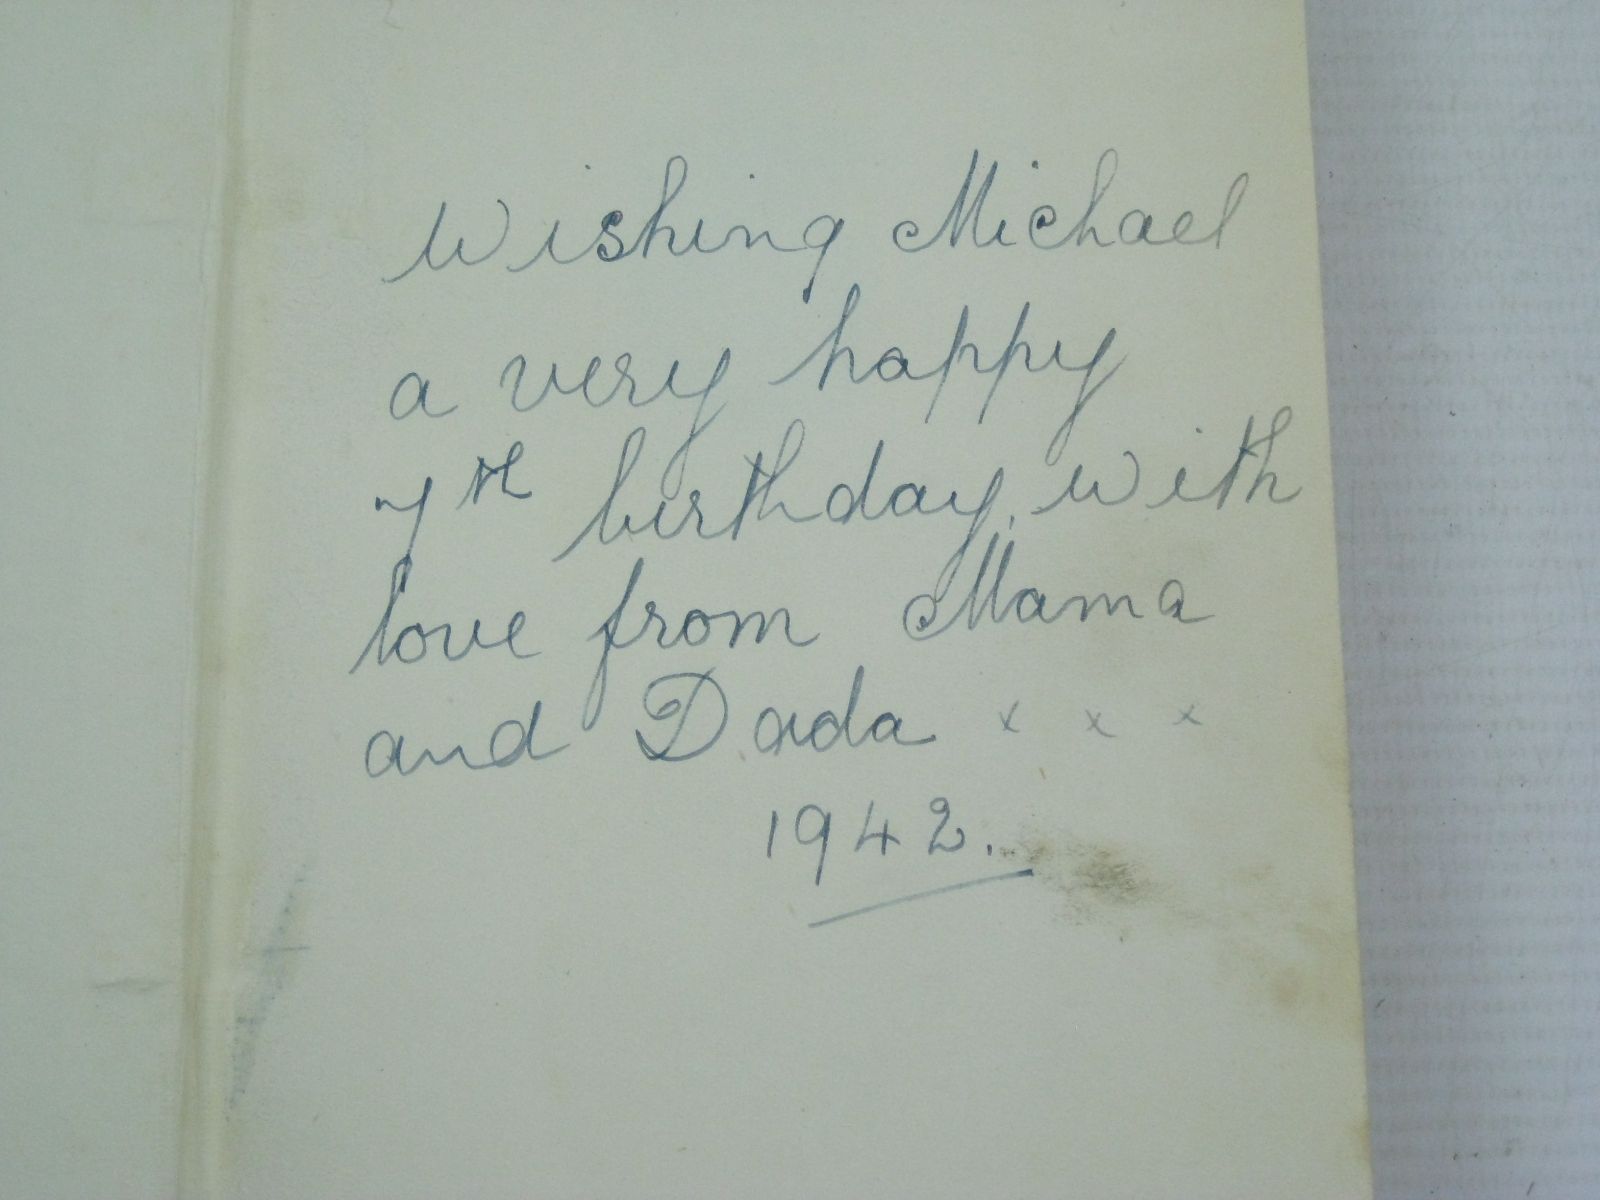 Wishing Michael
a very happy
7th birthday, with
love from Mama
and Dada x x x
1942.